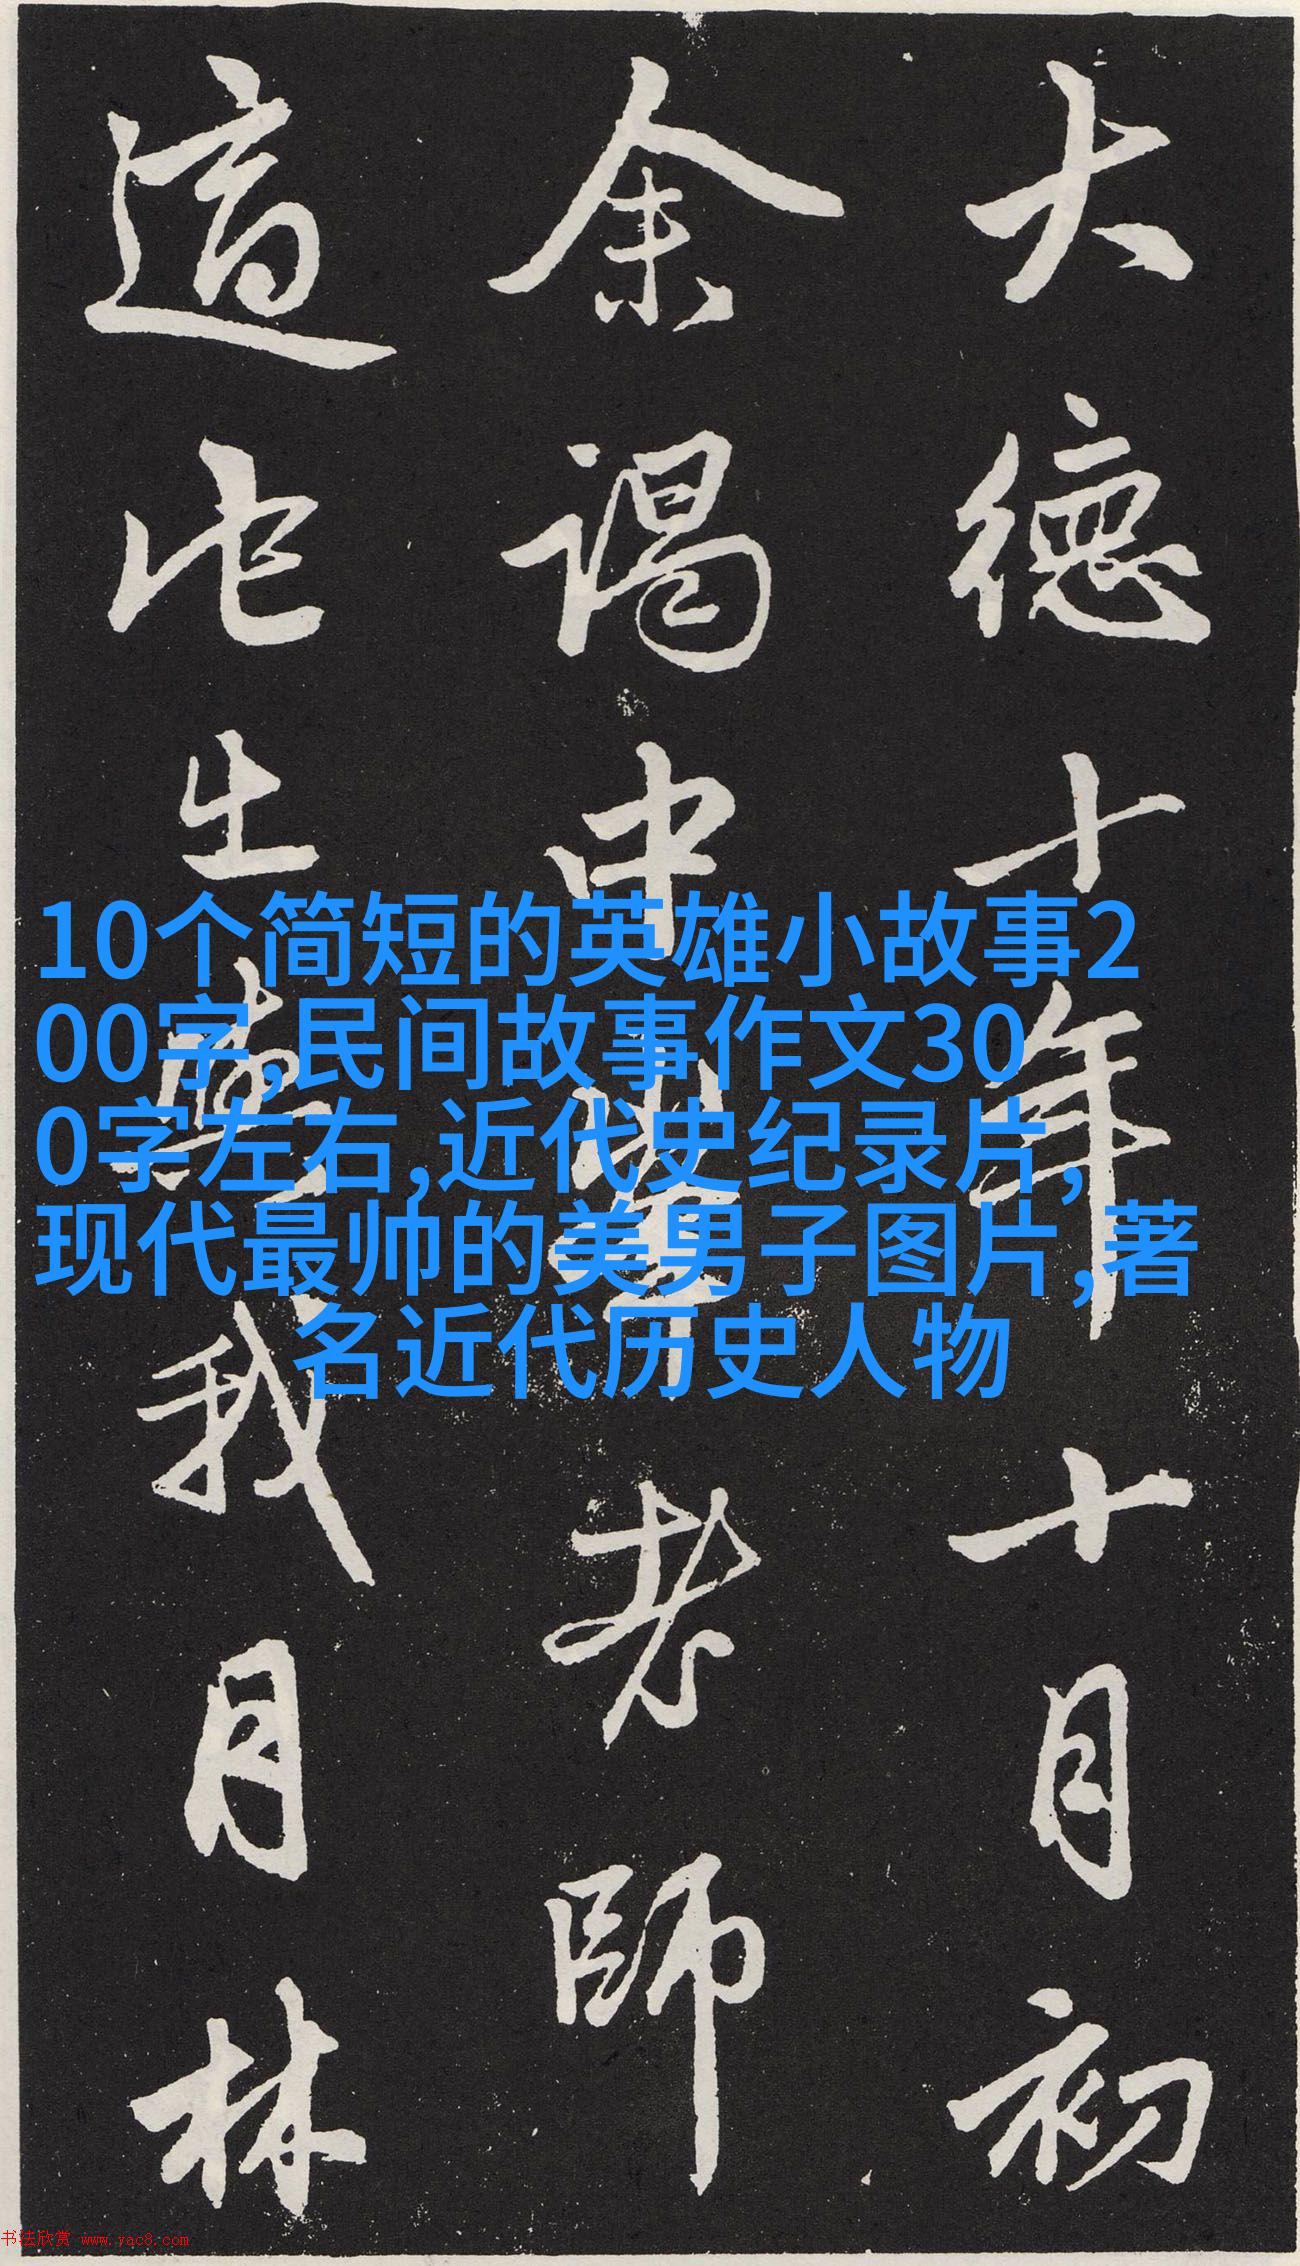 大德十年十月初
余謁中老師
適我月林
10个简短的英雄小故事2
00字,民间故事作文30
0字左右,近代史纪录片,
现代最帅的美男子图片,著
名近代历史人物
书法欣赏 www.yac8.com